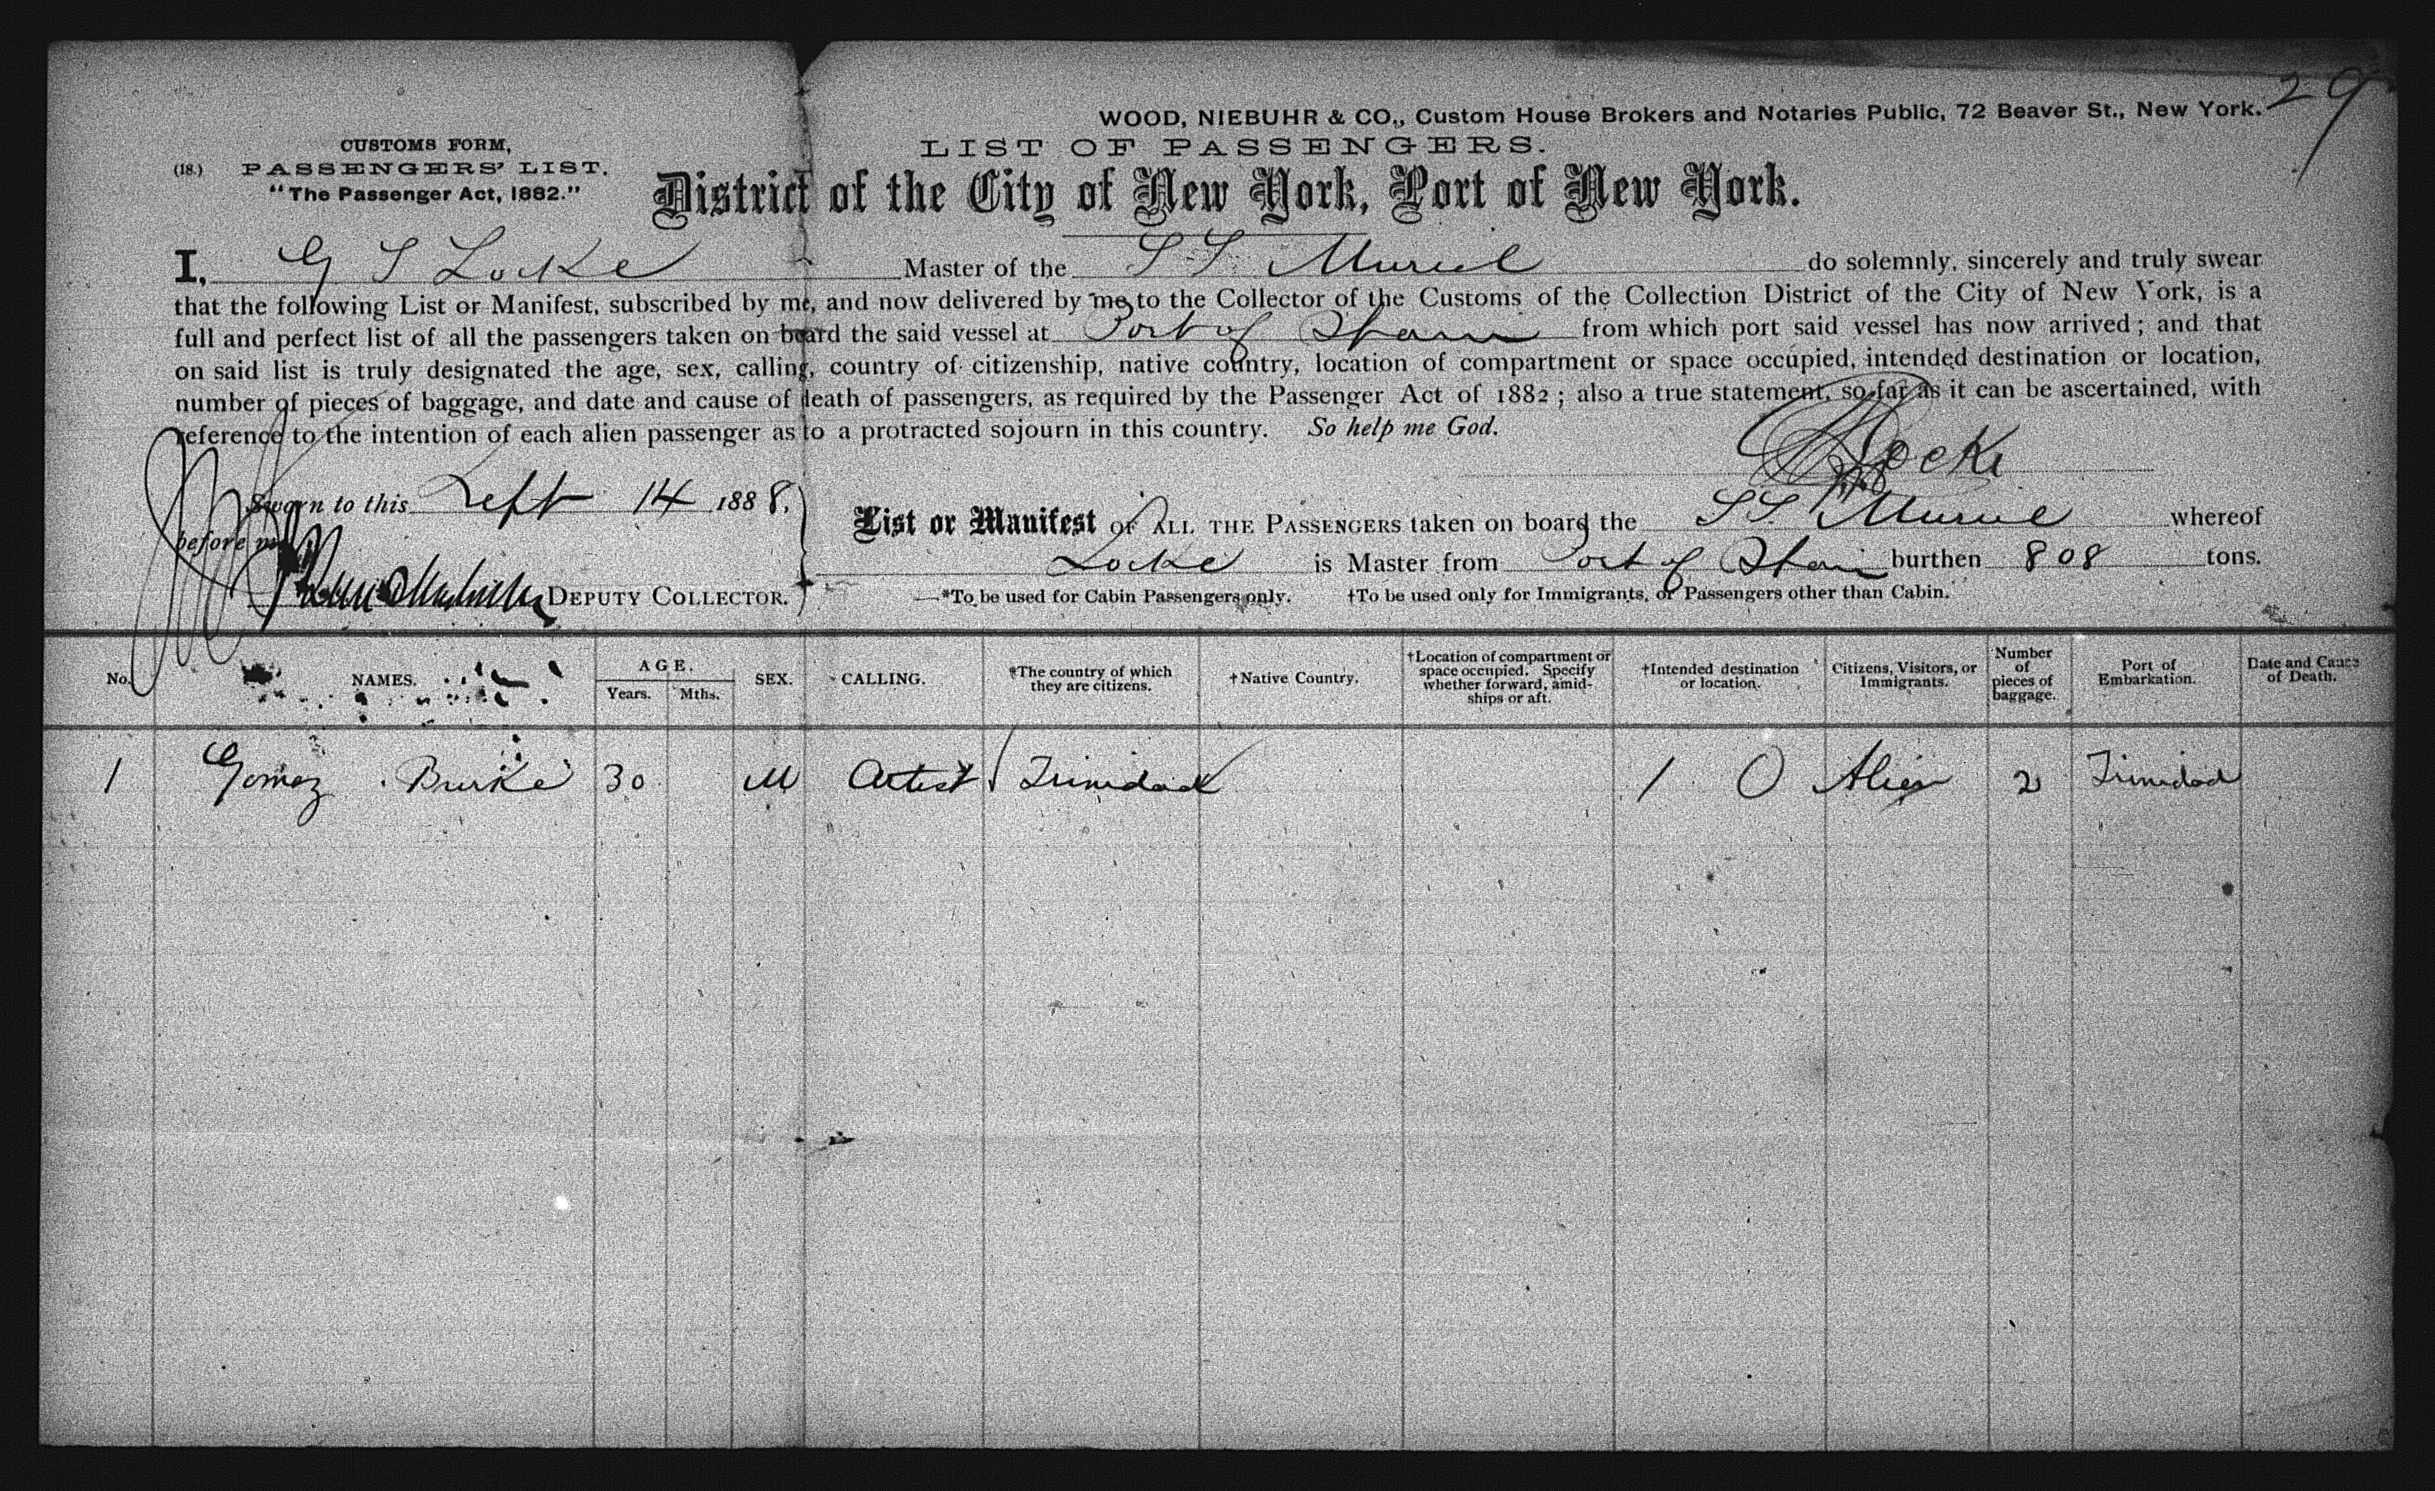 29
WOOD, NIEBUHR & CO., Custom House Brokers and Notaries Public, 72 Beaver St., New York.
CUSTOMS FORM,
(18.) PASSENGERS' LIST.
"The Passenger Act, 1882."
LIST OF PASSENGERS.
District of the City of New York, Port of New York.
I, G S Locke Master of the SS Muriel do solemnly, sincerely and truly swear
that the following List or Manifest, subscribed by me, and now delivered by me to the Collector of the Customs of the Collection District of the City of New York, is a
full and perfect list of all the passengers taken on board the said vessel at Port of Spain from which port said vessel has now arrived; and that
on said list is truly designated the age, sex, calling, country of citizenship, native country, location of compartment or space occupied, intended destination or location,
number of pieces of baggage, and date and cause of death of passengers, as required by the Passenger Act of 1882; also a true statement, so far as it can be ascertained, with
reference to the intention of each alien passenger as to a protracted sojourn in this country. So help me God.
Locke
Sworn to this Sept 14 1888,
before me
DEPUTY COLLECTOR.
List or Manifest OF ALL THE PASSENGERS taken on board the SS Muriel whereof
Locke is Master from Port of Spain burthen 808 tons.
*To be used for Cabin Passengers only. †To be used only for Immigrants, or Passengers other than Cabin.
No. NAMES. AGE. Years. Mths. SEX. CALLING. *The country of which they are citizens. †Native Country. †Location of compartment or space occupied. Specify whether forward, amidships or aft. †Intended destination or location. Citizens, Visitors, or Immigrants. Number of pieces of baggage. Port of Embarkation. Date and Cause of Death.
1 Gomez Burke 30 M Artist Trinidad 1 0 Alien 2 Trinidad